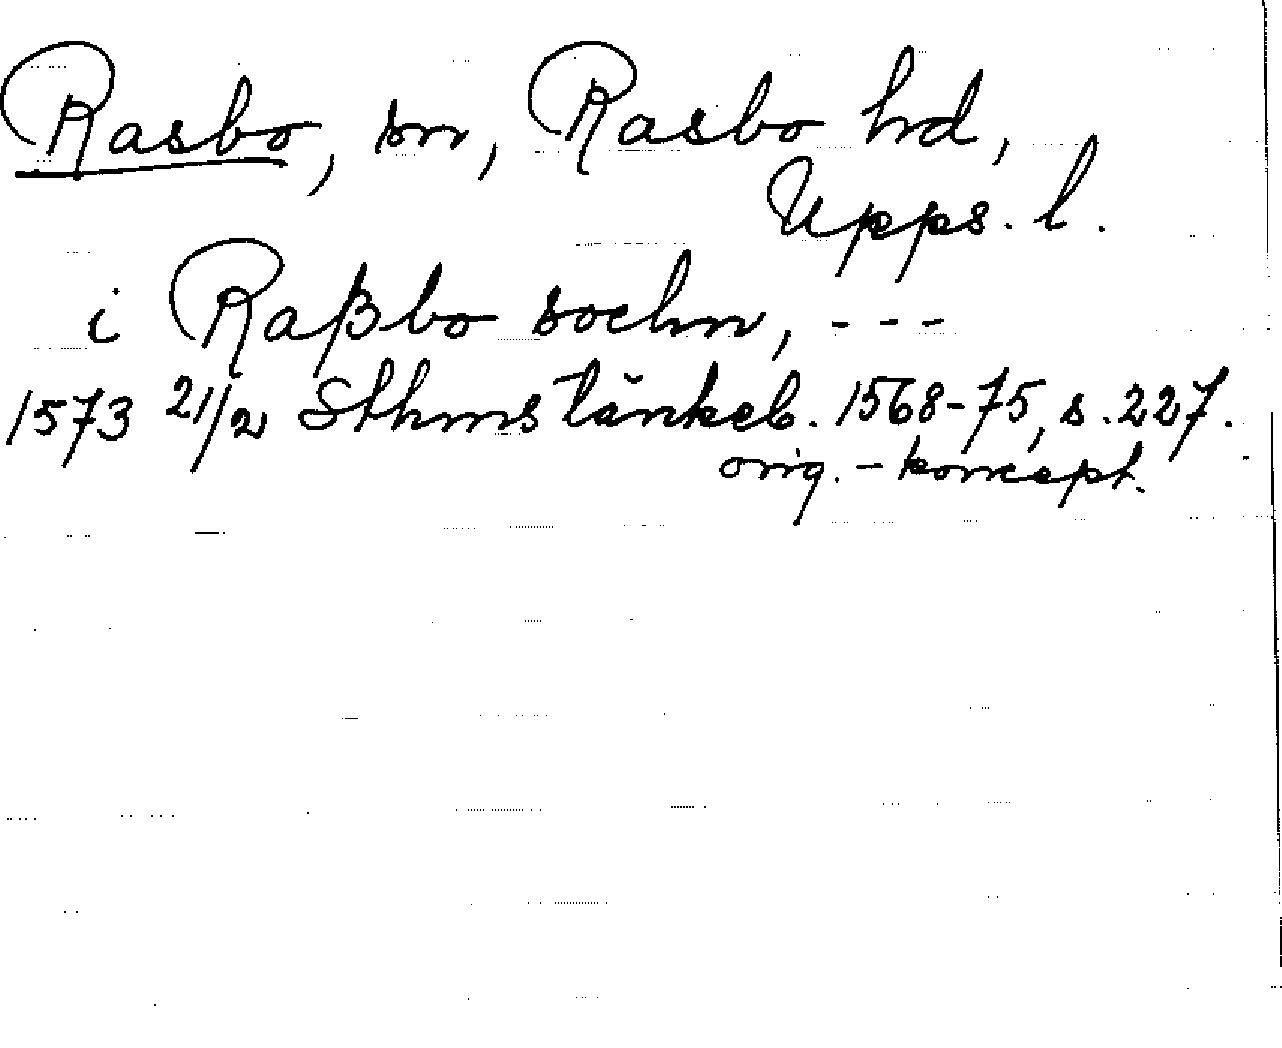 Rasbo, sn, Rasbo hd,
Upps. l.
i Raßbo sochn, - - -
1573 21/2 Sthms tänkeb. 1568-75, s. 227.
orig. - koncept.